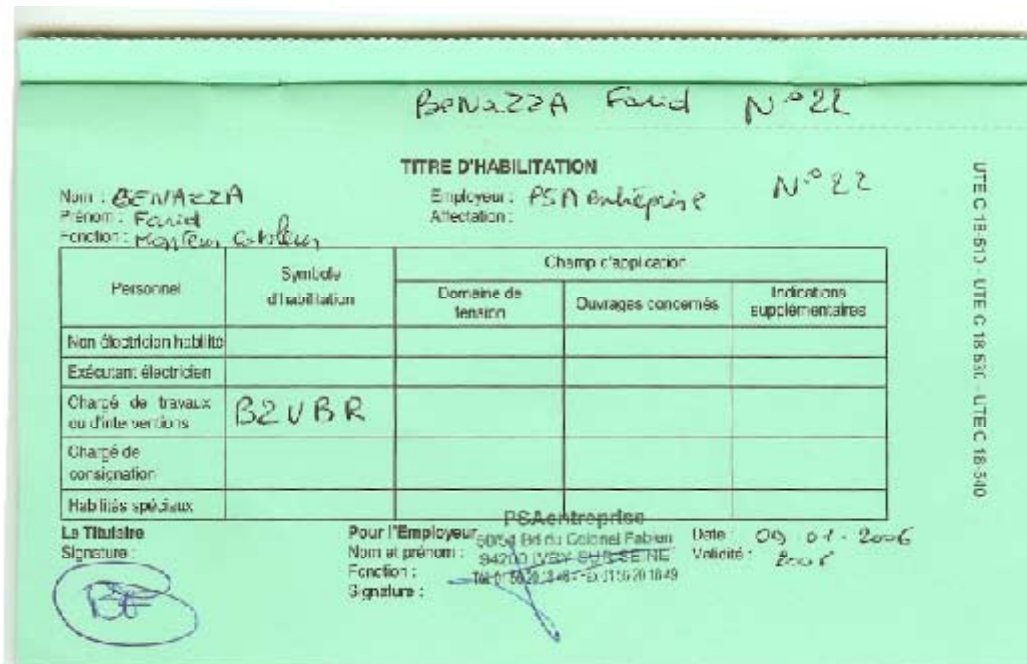 BENAZZA Farid N° 22
TITRE D'HABILITATION
N° 22
Nom : BENAZZA
Employeur : PSA entréprise
Prénom : Farid
Affectation :
Fonction : Monteur
Personnel
Symbole d'habilitation
Champ d'application
Domaine de tension
Ouvrages concernés
Indications supplémentaires
Non électricien habilité
Exécutant électricien
Chargé de travaux ou d'interventions
B2V BR
Chargé de consignation
Habilités spéciaux
Le Titulaire
Signature :
BF
Pour l'Employeur
Nom et prénom :
Fonction :
Signature :
PSAentreprise
50/54 Bd du Colonel Fabien
94200 IVRY SUR SEINE
Date : 09 01 - 2006
Validité :
UTE C 18-510 - UTE C 18-530 - UTE C 18-540